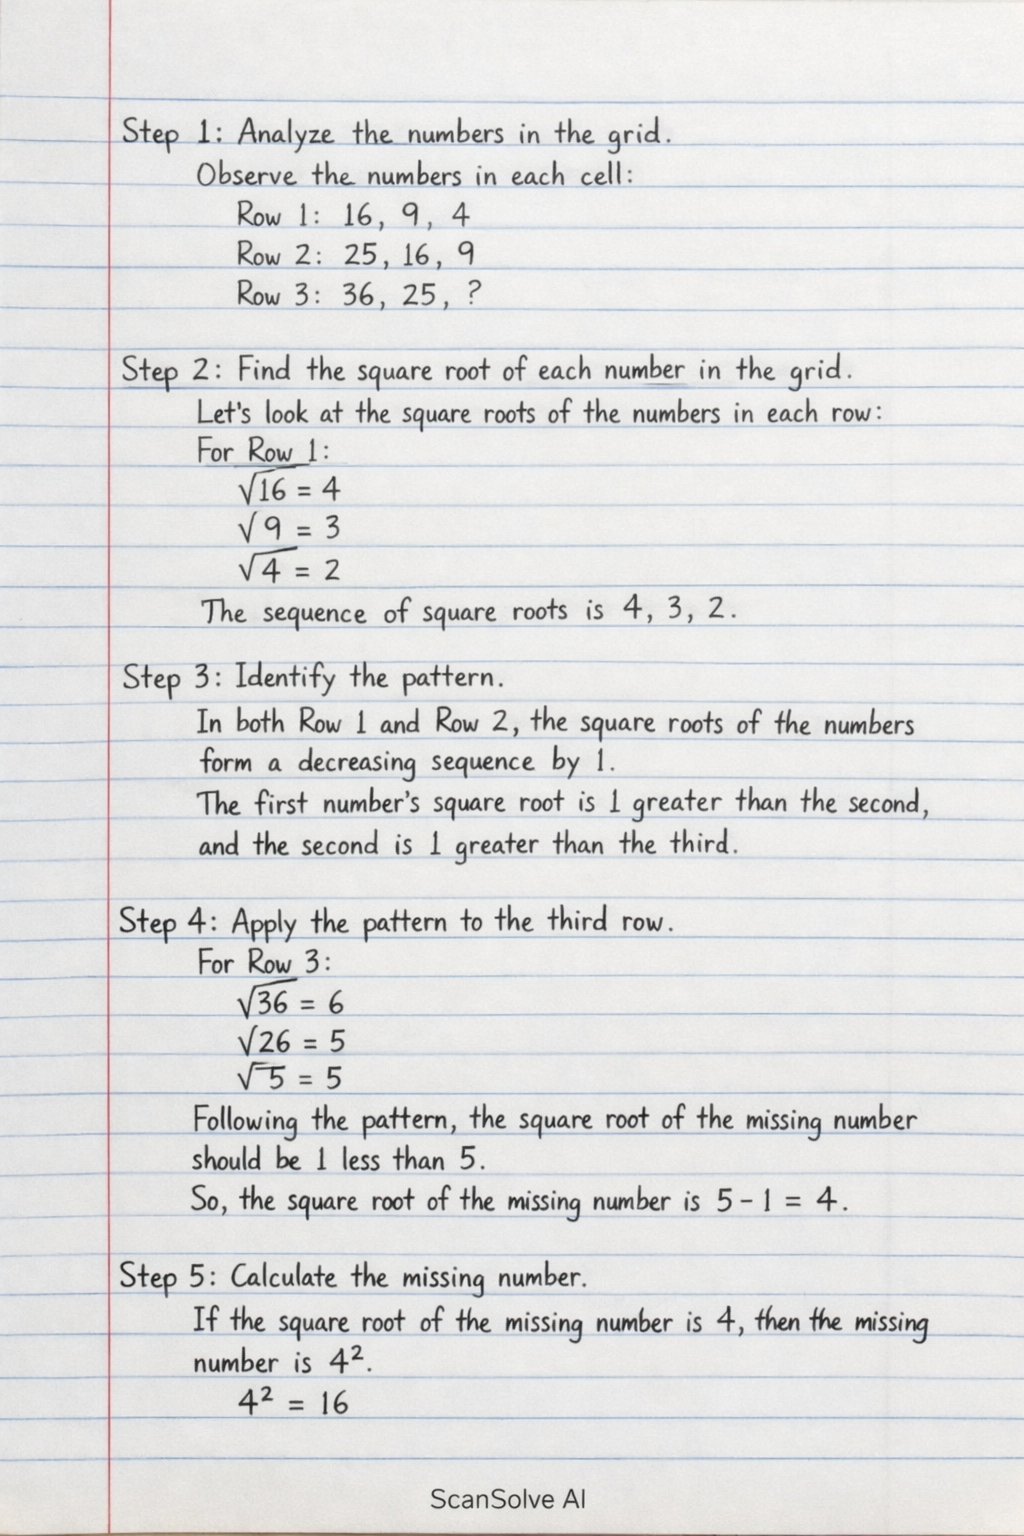 Step 1: Analyze the numbers in the grid.
Observe the numbers in each cell:
Row 1: 16, 9, 4
Row 2: 25, 16, 9
Row 3: 36, 25, ?
Step 2: Find the square root of each number in the grid.
Let's look at the square roots of the numbers in each row:
For Row 1:
√16 = 4
√9 = 3
√4 = 2
The sequence of square roots is 4, 3, 2.
Step 3: Identify the pattern.
In both Row 1 and Row 2, the square roots of the numbers
form a decreasing sequence by 1.
The first number's square root is 1 greater than the second,
and the second is 1 greater than the third.
Step 4: Apply the pattern to the third row.
For Row 3:
√36 = 6
√26 = 5
√5 = 5
Following the pattern, the square root of the missing number
should be 1 less than 5.
So, the square root of the missing number is 5 - 1 = 4.
Step 5: Calculate the missing number.
If the square root of the missing number is 4, then the missing
number is 4².
4² = 16
ScanSolve AI